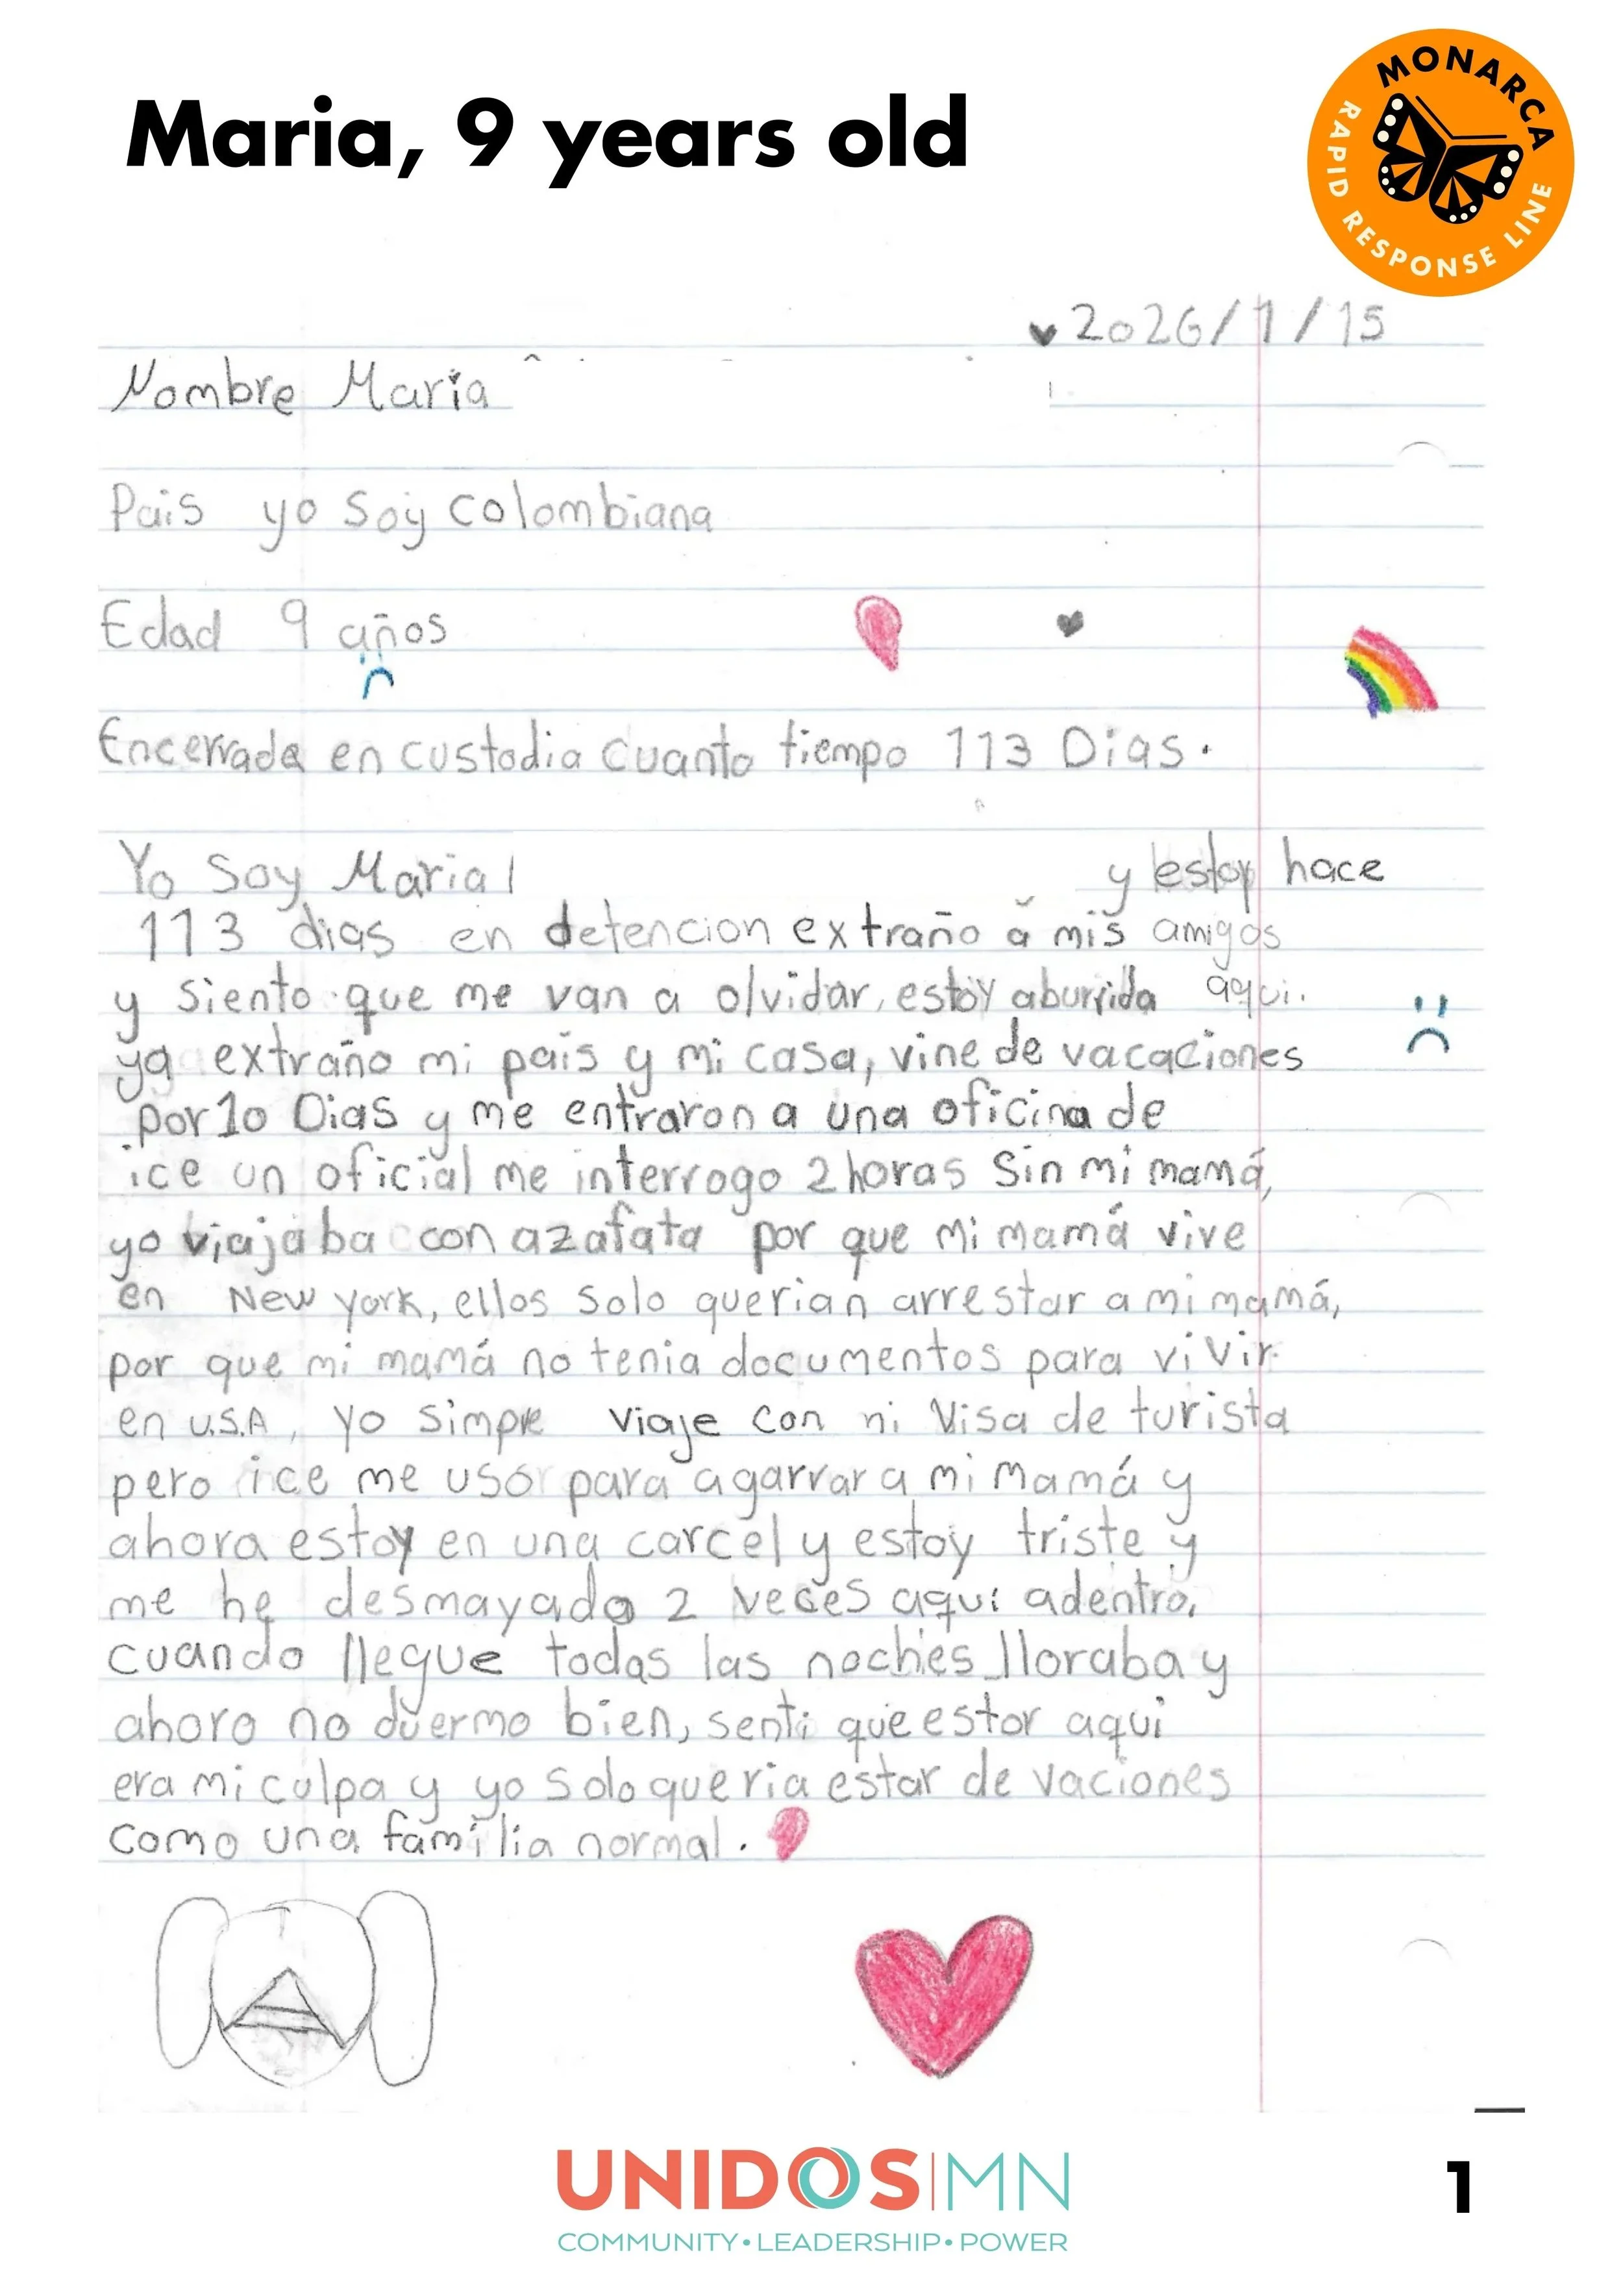 Maria, 9 years old
MONARCA
RAPID RESPONSE LINE
2026/1/15
Nombre Maria
Pais yo soy colombiana
Edad 9 años
Encerrada en custodia cuanto tiempo 113 Dias.
Yo soy Maria y estoy hace
113 dias en detencion extraño a mis amigos
y siento que me van a olvidar, estoy aburrida aqui.
ya extraño mi pais y mi casa, vine de vacaciones
por 10 Dias y me entraron a una oficina de
ice un oficial me interrogo 2 horas sin mi mamá,
yo viajaba con azafata por que mi mamá vive
en New york, ellos solo querian arrestar a mi mamá,
por que mi mamá no tenia documentos para vivir
en U.S.A, yo simpre viaje con mi visa de turista
pero ice me usó para agarrar a mi mamá y
ahora estoy en una carcel y estoy triste y
me he desmayado 2 veces aqui adentro,
cuando llegue todas las noches lloraba y
ahora no duermo bien, senti que estor aqui
era mi culpa y yo solo queria estar de vaciones
como una familia normal.
UNIDOS|MN
COMMUNITY•LEADERSHIP•POWER
1